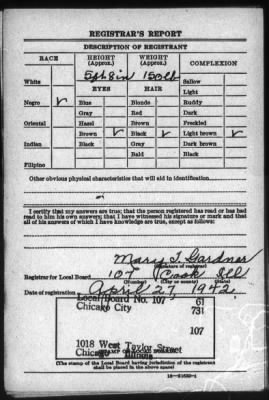 REGISTRAR'S REPORT
DESCRIPTION OF REGISTRANT
RACE HEIGHT (Approx.) WEIGHT (Approx.) COMPLEXION
5 ft 8 in 150 lb
White EYES HAIR Sallow
Light
Negro ✓ Blue Blonde Ruddy
Gray Red Dark
Oriental Hazel Brown Freckled
Brown ✓ Black ✓ Light brown ✓
Indian Black Gray Dark brown
Bald Black
Filipino
Other obvious physical characteristics that will aid in identification
I certify that my answers are true; that the person registered has read or has had
read to him his own answers; that I have witnessed his signature or mark and that
all of his answers of which I have knowledge are true, except as follows:
Mary T. Gardner
(Signature of registrar)
Registrar for Local Board 107 Cook Ill
(Number) (City or county) (State)
Date of registration April 27, 1942
Local Board No. 107 61
Chicago City 731
107
1018 West Taylor Street
Chicago Illinois
(STAMP OF LOCAL BOARD)
(The stamp of the Local Board having jurisdiction of the registrant
shall be placed in the above space.)